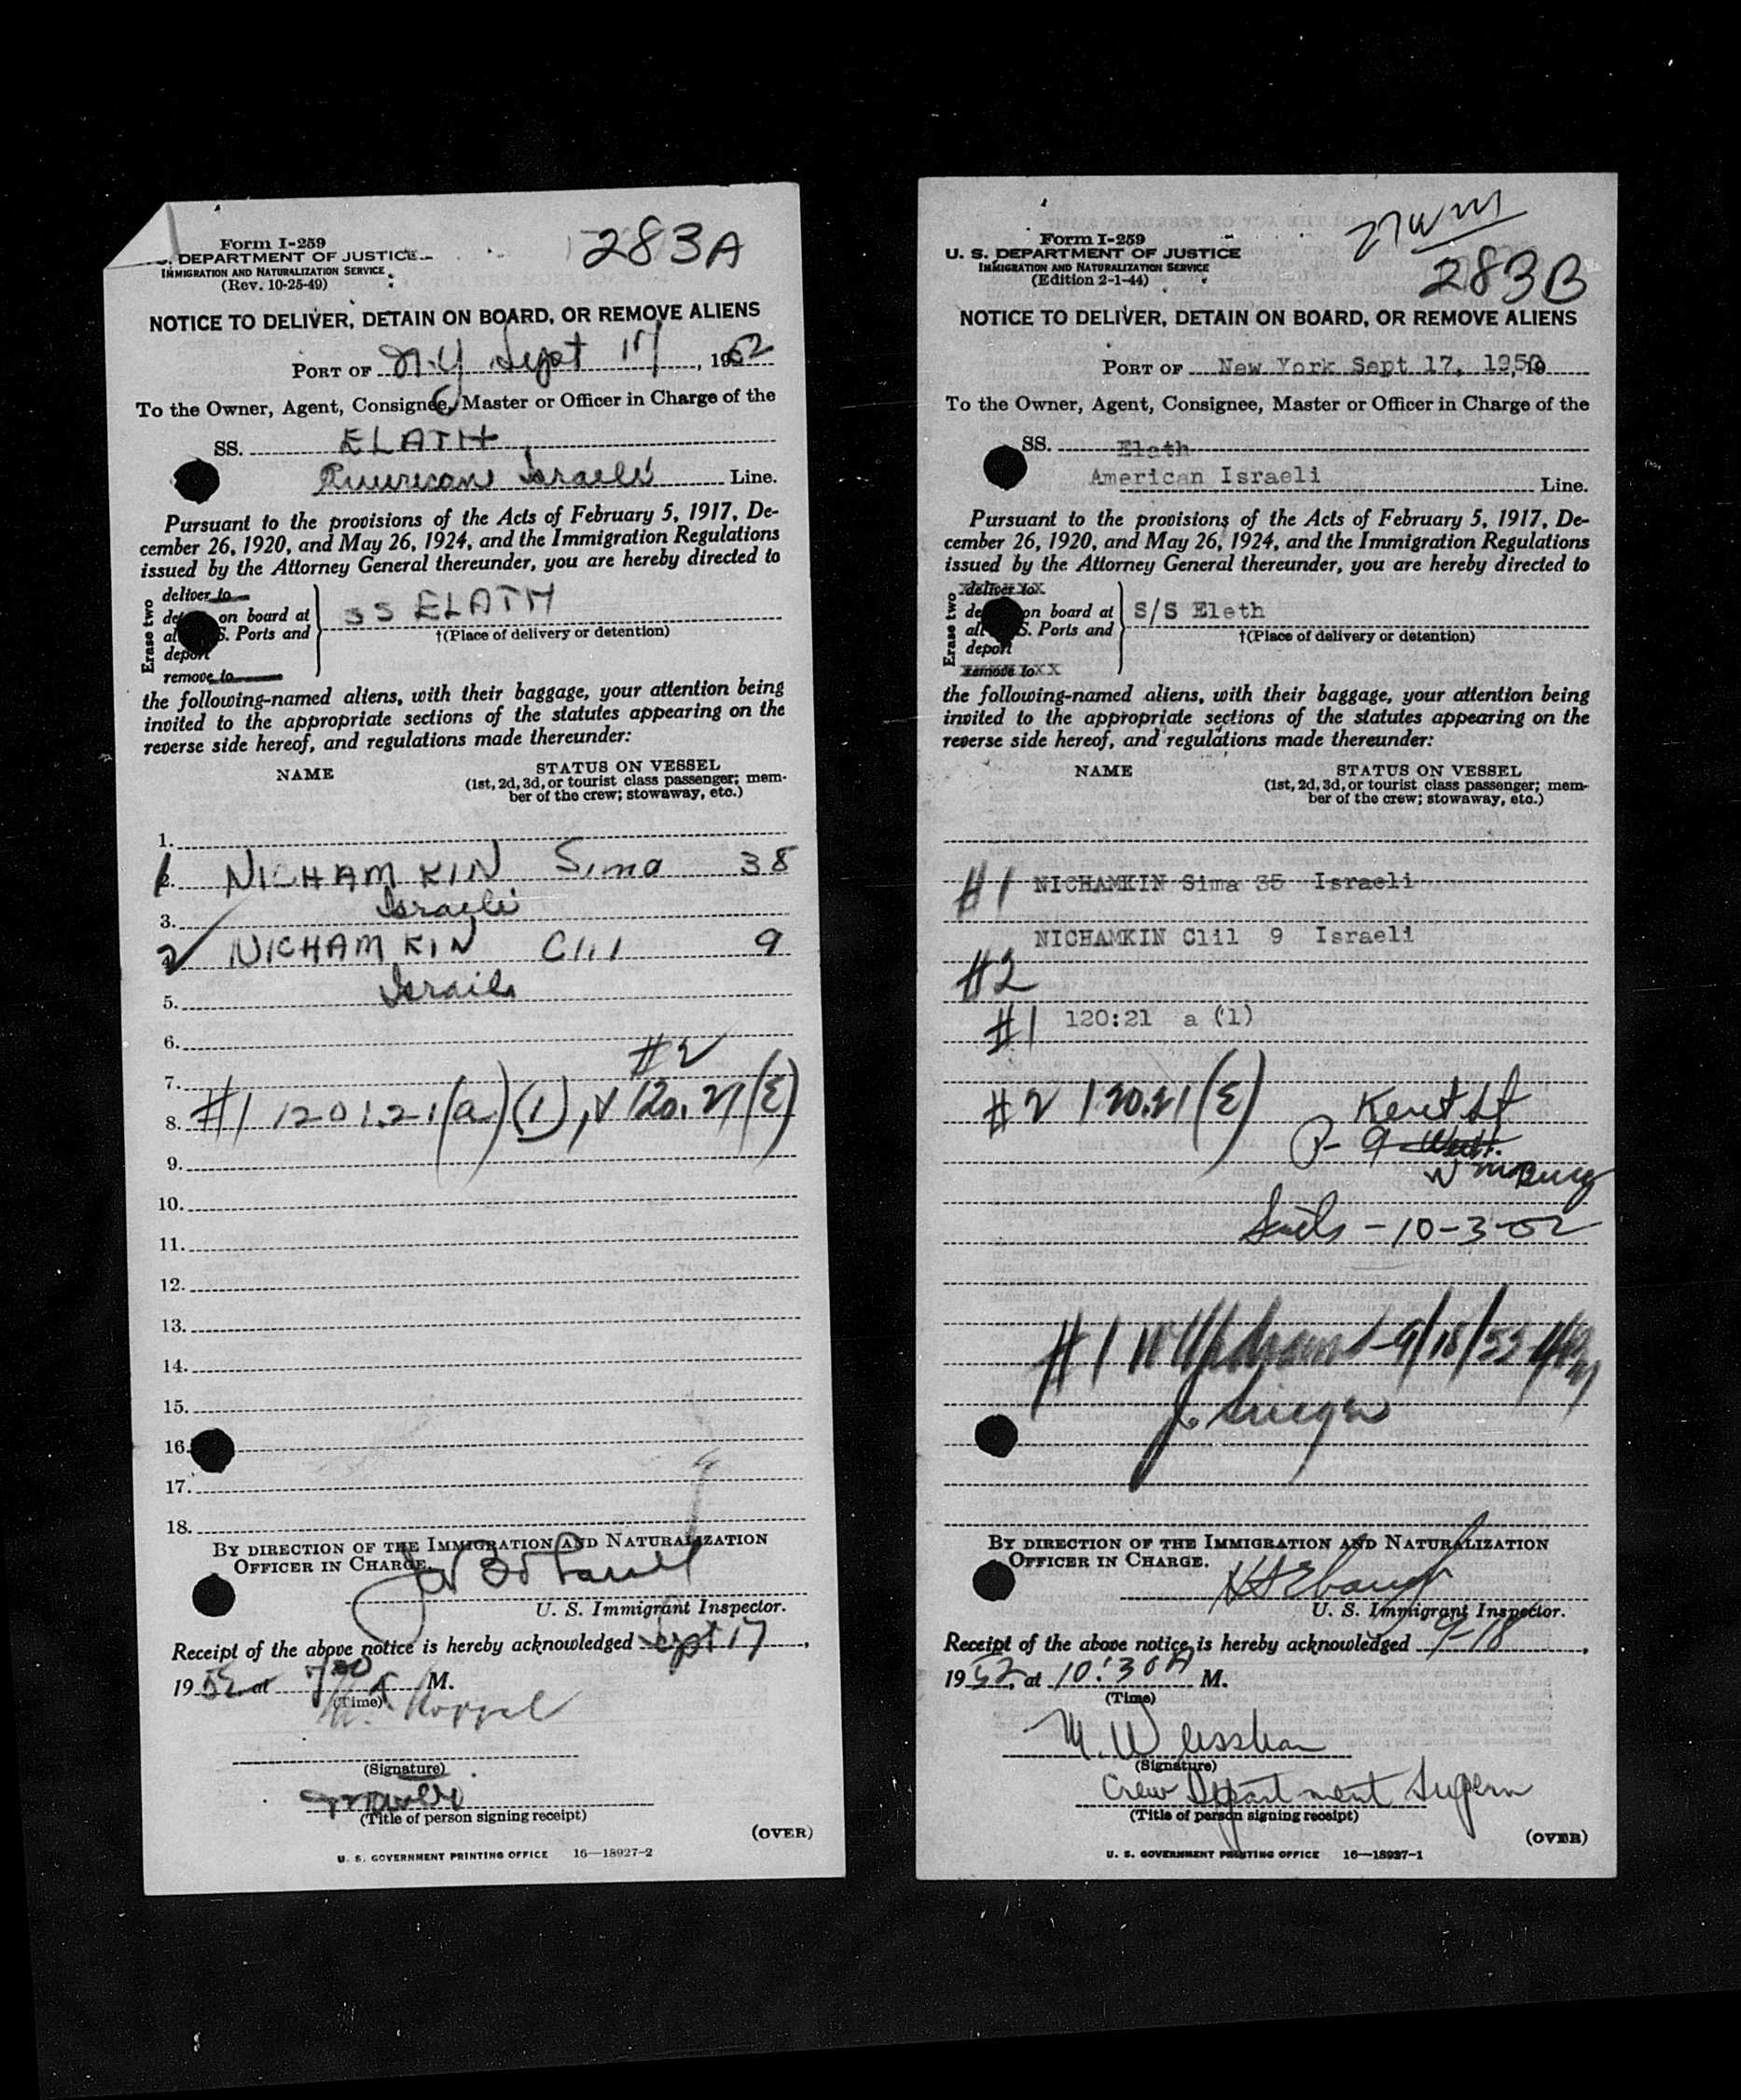 Form I-259
. DEPARTMENT OF JUSTICE
IMMIGRATION AND NATURALIZATION SERVICE
(Rev. 10-25-49)
283A
NOTICE TO DELIVER, DETAIN ON BOARD, OR REMOVE ALIENS
PORT OF N.Y Sept 17, 1952
To the Owner, Agent, Consignee, Master or Officer in Charge of the
SS. ELATH
American Israeli Line.
Pursuant to the provisions of the Acts of February 5, 1917, De-
cember 26, 1920, and May 26, 1924, and the Immigration Regulations
issued by the Attorney General thereunder, you are hereby directed to
Erase two
deliver to
de on board at
al S. Ports and
deport
remove to
SS ELATH
†(Place of delivery or detention)
the following-named aliens, with their baggage, your attention being
invited to the appropriate sections of the statutes appearing on the
reverse side hereof, and regulations made thereunder:
NAME
STATUS ON VESSEL
(1st, 2d, 3d, or tourist class passenger; mem-
ber of the crew; stowaway, etc.)
1.
1 2. NICHAMKIN Sima 38
Israeli
3.
2 4. NICHAMKIN Clil 9
Israeli
5.
6.
#2
7.
8. #1 120.21(a)(1), 120.21(E)
9.
10.
11.
12.
13.
14.
15.
16.
17.
18.
BY DIRECTION OF THE IMMIGRATION AND NATURALIZATION
OFFICER IN CHARGE.
U. S. Immigrant Inspector.
Receipt of the above notice is hereby acknowledged Sept 17,
1952 at M.
(Time)
(Signature)
(Title of person signing receipt)
(OVER)
U. S. GOVERNMENT PRINTING OFFICE 16—18927-2
Form I-259
U. S. DEPARTMENT OF JUSTICE
IMMIGRATION AND NATURALIZATION SERVICE
(Edition 2-1-44)
283B
NOTICE TO DELIVER, DETAIN ON BOARD, OR REMOVE ALIENS
PORT OF New York Sept 17, 1952, 19
To the Owner, Agent, Consignee, Master or Officer in Charge of the
SS. Elath
American Israeli Line.
Pursuant to the provisions of the Acts of February 5, 1917, De-
cember 26, 1920, and May 26, 1924, and the Immigration Regulations
issued by the Attorney General thereunder, you are hereby directed to
Erase two
deliver to
de on board at
all S. Ports and
deport
remove to
S/S Elath
†(Place of delivery or detention)
the following-named aliens, with their baggage, your attention being
invited to the appropriate sections of the statutes appearing on the
reverse side hereof, and regulations made thereunder:
NAME
STATUS ON VESSEL
(1st, 2d, 3d, or tourist class passenger; mem-
ber of the crew; stowaway, etc.)
#1 NICHAMKIN Sima 35 Israeli
NICHAMKIN Clil 9 Israeli
#2
#1 120:21 a (1)
#2 120.21(E)
Kent St
P- 9
Sails - 10-3-52
#1 Withdrawn 9/18/52
BY DIRECTION OF THE IMMIGRATION AND NATURALIZATION
OFFICER IN CHARGE.
U. S. Immigrant Inspector.
Receipt of the above notice is hereby acknowledged 9-18,
1952, at 10:30 A M.
(Time)
(Signature)
Crew Department
(Title of person signing receipt)
(OVER)
U. S. GOVERNMENT PRINTING OFFICE 16—18927-1